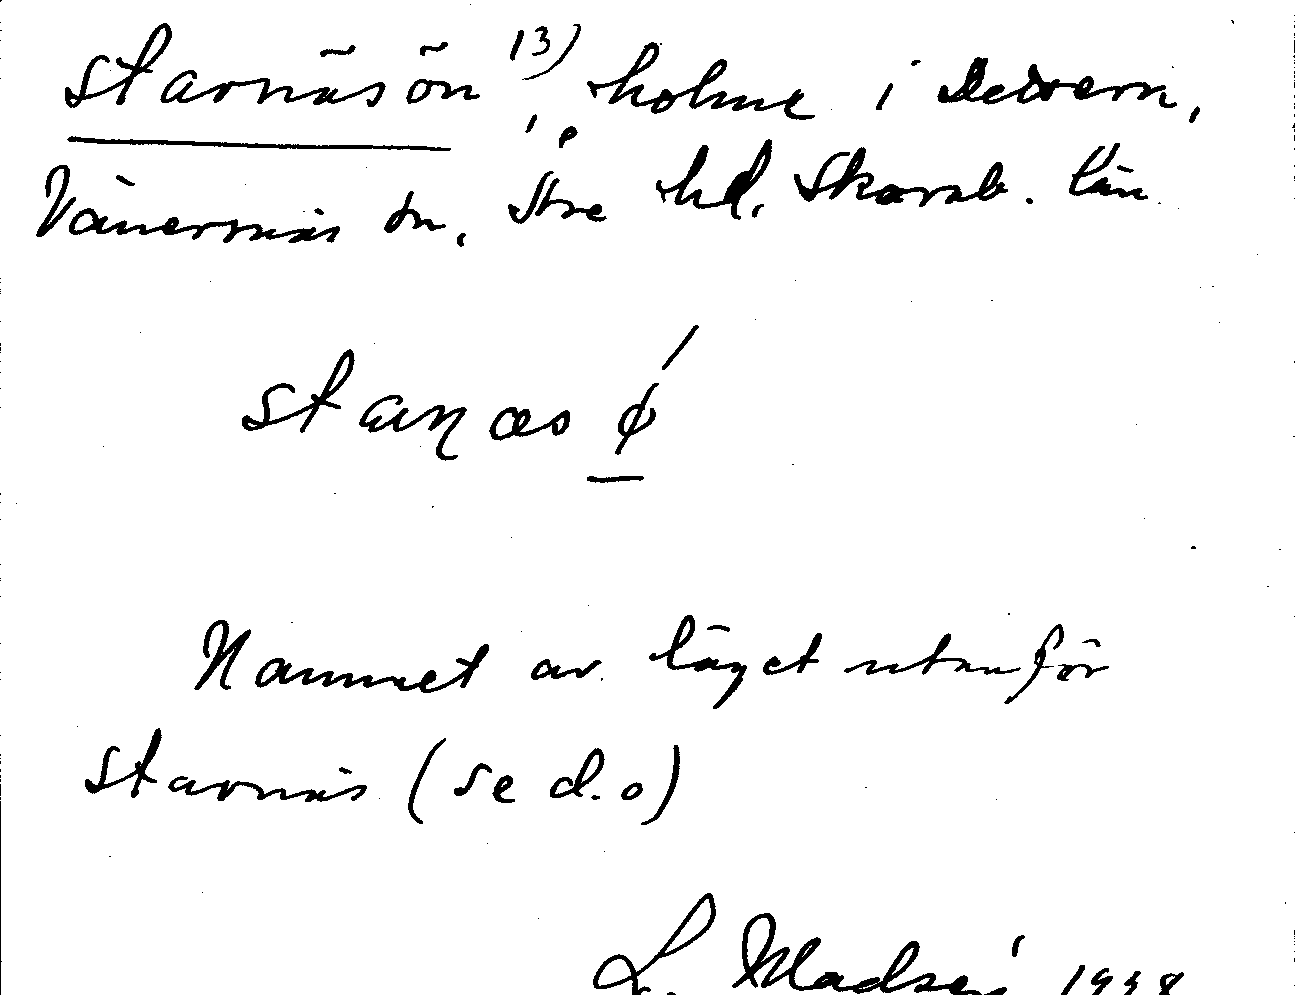 Starnäsön 13), holme i Dettern,
Vänersnäs sn, Åse hd, Skarab. län
staɳæsø
Namnet av läget utanför
Starnäs (se d.o)
L. Madsén 1938